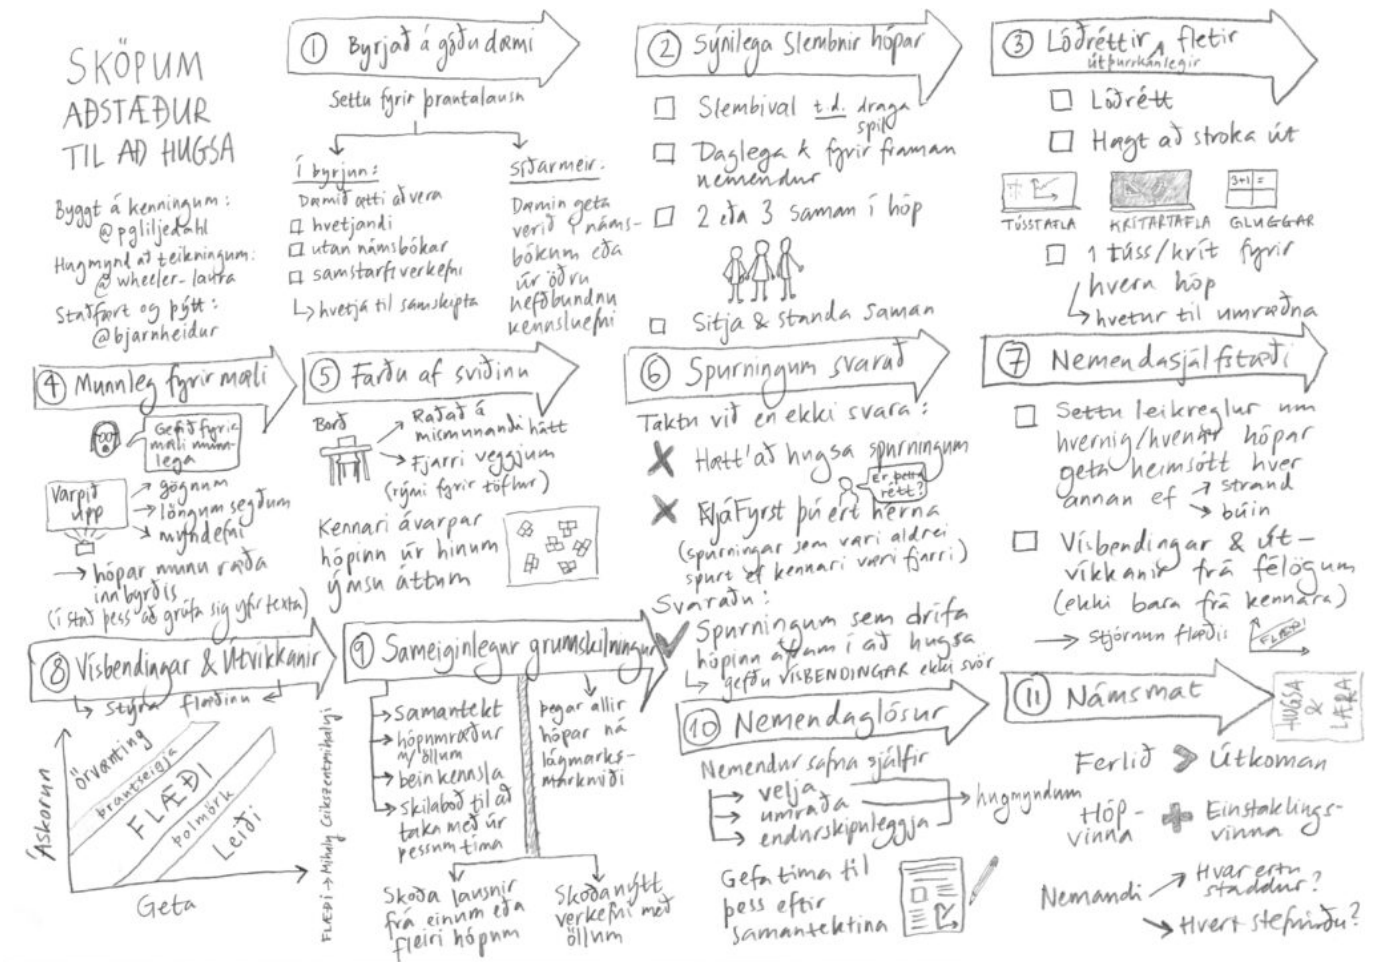 SKÖPUM
AÐSTÆÐUR
TIL AÐ HUGSA
Byggt á kenningum:
@pgliljedahl
Hugmynd að teikningum:
@wheeler-laura
Staðfært og þýtt:
@bjarnheidur
1 Byrjað á góðu dæmi
Settu fyrir þrautalausn
Í byrjun:
Dæmið ætti að vera
hvetjandi
utan námsbókar
samstarfsverkefni
hvetja til samskipta
síðarmeir:
Dæmin geta
verið í náms-
bókum eða
úr öðru
hefðbundnu
kennsluefni
2 Sýnilega Slembnir hópar
Slembival t.d. draga
spil
Daglega & fyrir framan
nemendur
2 eða 3 saman í hóp
Sitja & standa saman
3 Lóðréttir fletir
útþurrkanlegir
Lóðrétt
Hægt að stroka út
TÚSSTAFLA
KRÍTARTAFLA
3+1 =
GLUGGAR
1 túss/krít fyrir
hvern hóp
hvetur til umræðna
4 Munnleg fyrirmæli
Gefið fyrir
mæli munn-
lega
Varpið
upp
gögnum
löngum segðum
myndefni
hópar munu ræða
innbyrðis
(í stað þess að grúfa sig yfir texta)
5 Farðu af sviðinu
Borð
Raðað á
mismunandi hátt
Fjarri veggjum
(rými fyrir töflur)
Kennari ávarpar
hópinn úr hinum
ýmsu áttum
6 Spurningum svarað
Taktu við en ekki svara:
Hætt'að hugsa spurningum
Er þetta
rétt?
Fyrst þú ert hérna
(spurningar sem væri aldrei
spurt ef kennari væri fjarri)
Svaraðu:
Spurningum sem drífa
hópinn áfram í að hugsa
gefðu VÍSBENDINGAR ekki svör
7 Nemendasjálfstæði
Settu leikreglur um
hvernig/hvenær hópar
geta heimsótt hver
annan ef
strand
búin
Vísbendingar & Út-
víkkanir frá félögum
(ekki bara frá kennara)
Stjórnun flæðis
FLÆÐI
8 Vísbendingar & Útvíkkanir
Stýra flæðinu
Áskorun
Örvænting
þrautseigja
FLÆÐI
þolmörk
Leiði
Geta
FLÆÐI → Mihaly Csikszentmihalyi
9 Sameiginlegur grunnskilningur
Samantekt
hópumræður
m/ öllum
bein kennsla
skilaboð til að
taka með úr
þessum tíma
þegar allir
hópar ná
lágmarks-
markmiði
Skoða lausnir
frá einum eða
fleiri hópum
Skoða nýtt
verkefni með
öllum
10 Nemendaglósur
Nemendur safna sjálfir
velja
umraða
endurskipuleggja
hugmyndum
Gefa tíma til
þess eftir
samantektina
11 Námsmat
HUGSA
&
LÆRA
Ferlið > Útkoman
Hóp-
vinna
+
Einstaklings-
vinna
Nemandi
Hvar ertu
staddur?
Hvert stefnirðu?